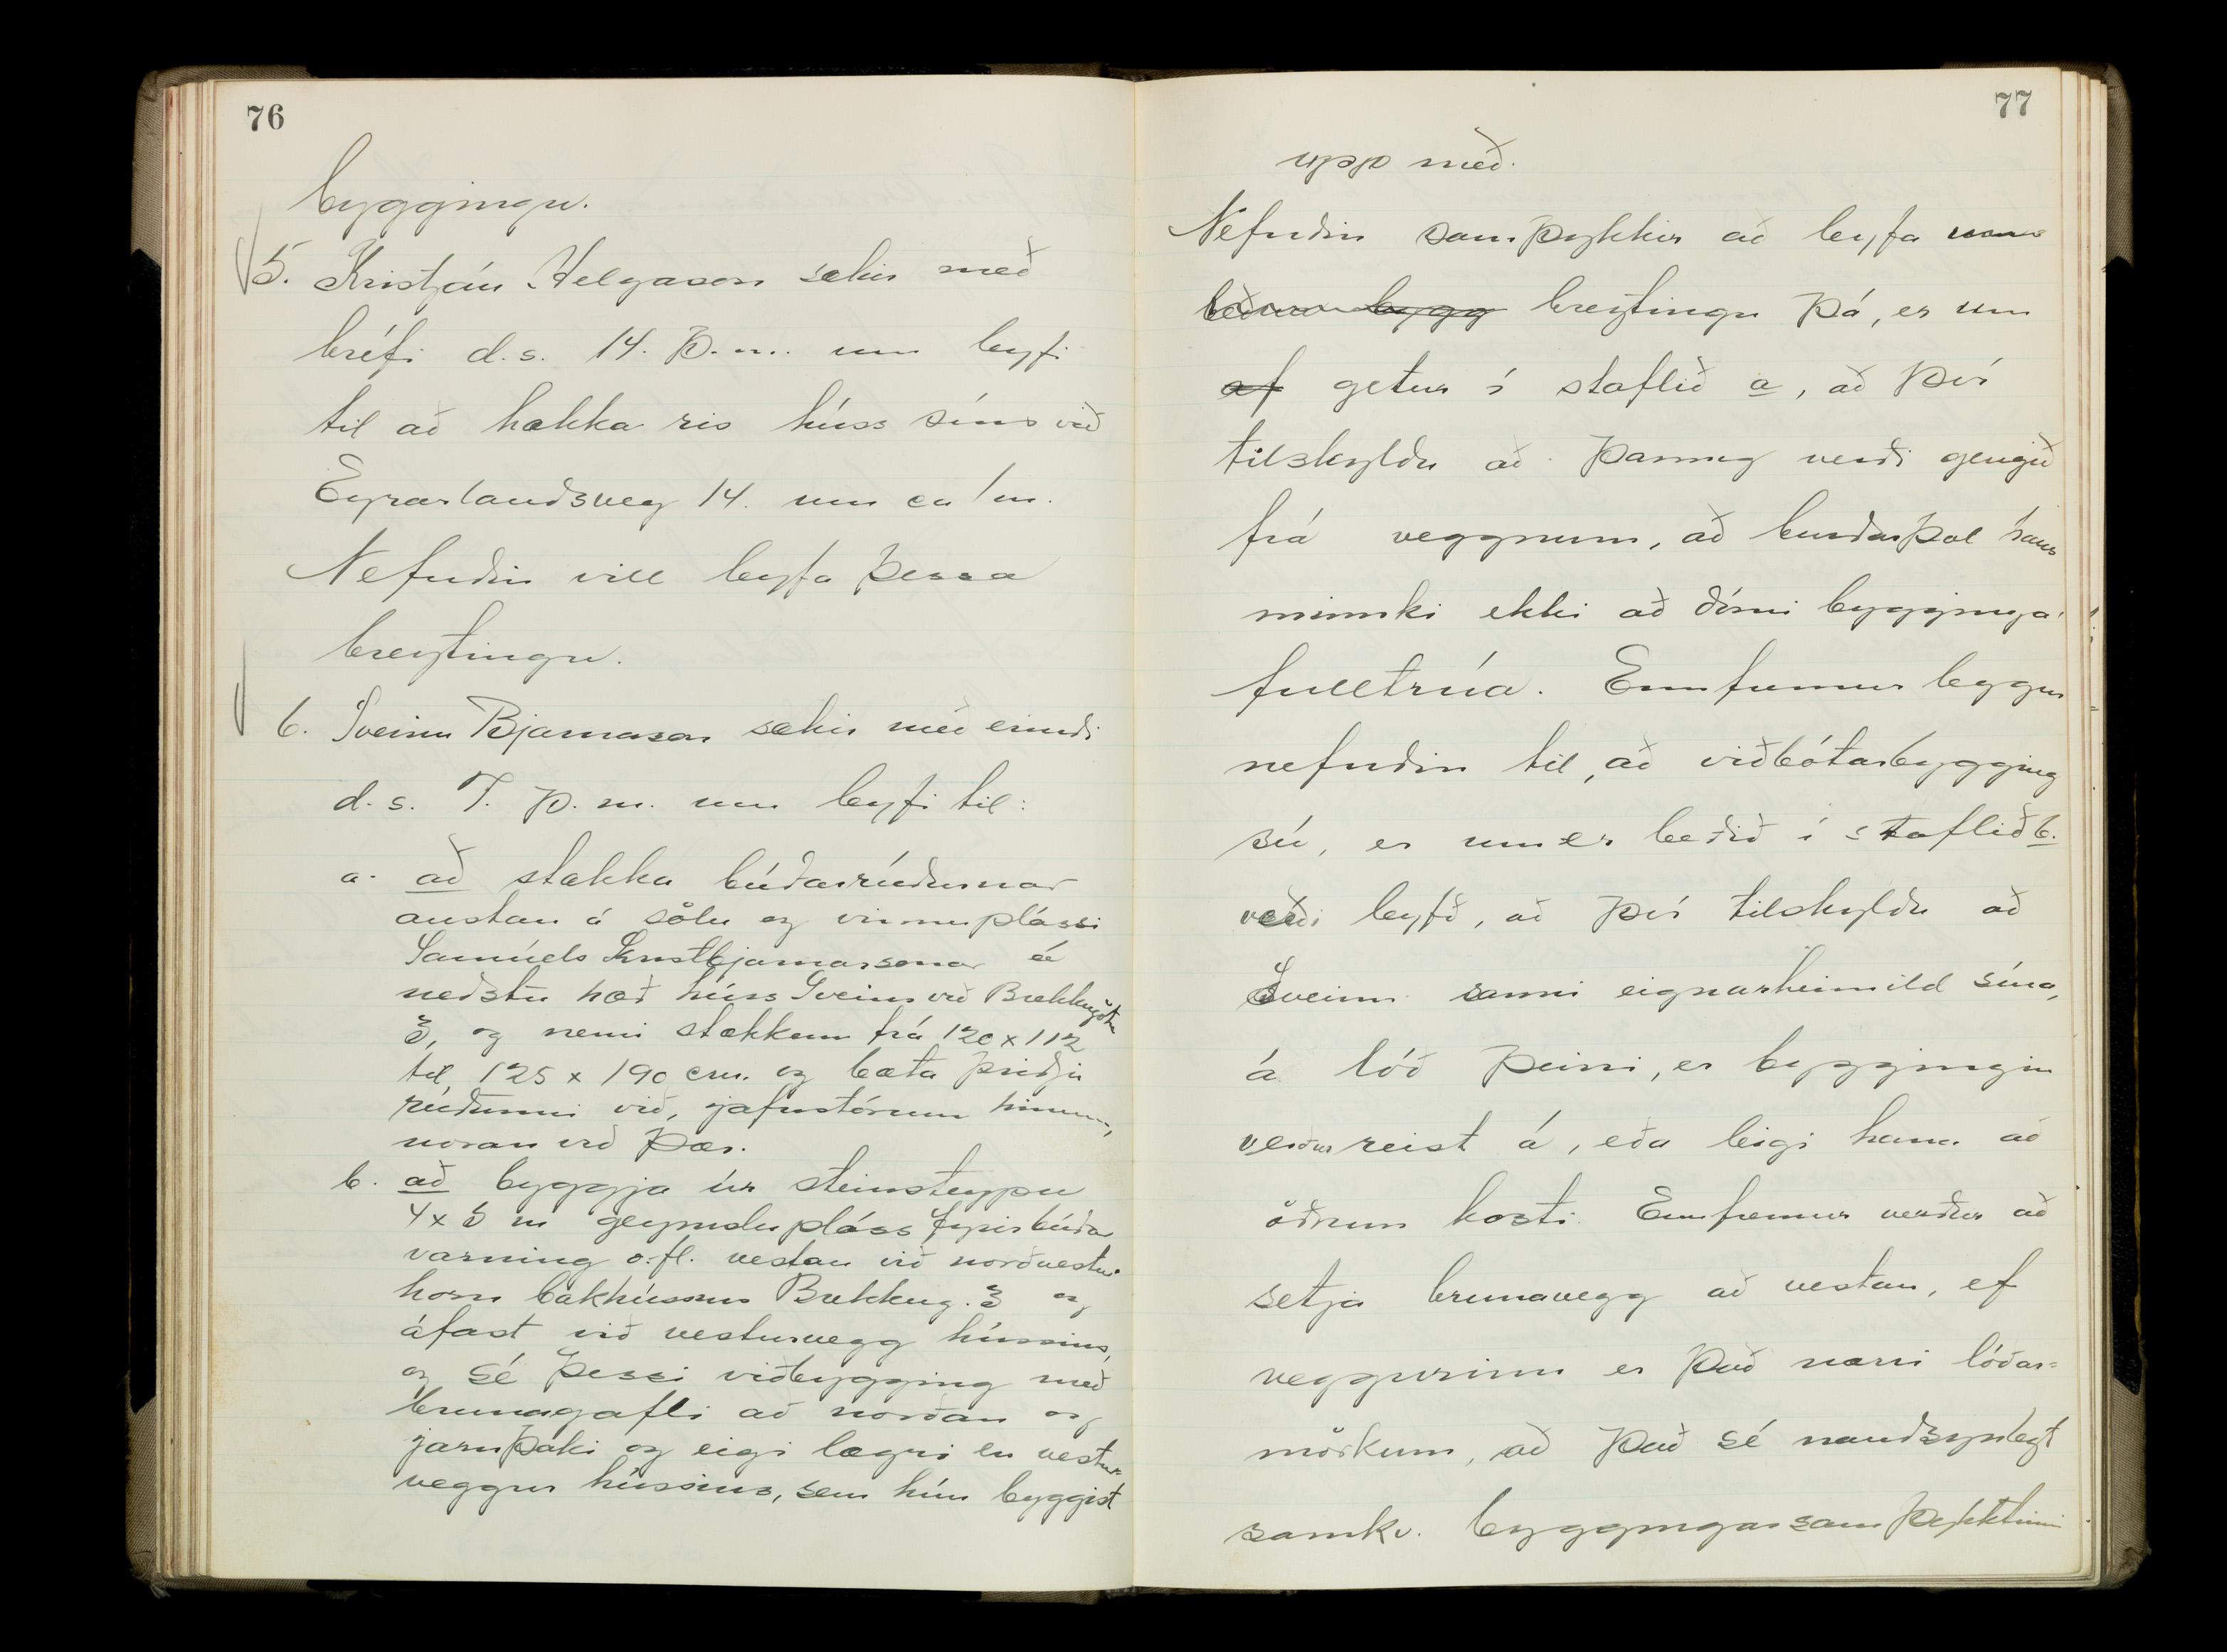 76
byggingu.
5. Kristján Helgason sækir með
bréfi d.s. 14. þ.m. um leyfi
til að hækka ris húss síns við
Eyrarlandsveg 14. um ca 1 m.
Nefndin vill leyfa þessa
breytingu.
6. Sveinn Bjarnason sækir með erindi
d.s. 7. þ.m. um leyfi til:
a. að stækka búðarrúðurnar
austan á sölu og vinnuplássi
Samúels Kristbjarnarsonar á
neðstu hæð húss Sveins við Brekkugötu
3, og nemi stækkun frá 120 x 112
til 125 x 190 cm. og bæta þriðju
rúðunni við, jafnstórum hinum,
noran við þær.
b. að byggja úr steinsteypu
4 x 5 m geymslupláss fyrir búðar
varning o.fl. vestan við norðvestur
horn bakhússins Brekkug. 3 og
áfast við vesturvegg hússins,
og sé þessi viðbygging með
brunagafli að norðan og
járnþaki og eigi lægri en vestur-
veggur hússins, sem hún byggist
77
upp með.
Nefndin samþykkir að leyfa
bygg breytingu þá, er um
af getur í staflið a, að því
tilskyldu að þannig verði gengið
frá veggnum, að burðarþol hans
minnki ekki að dómi bygginga-
fulltrúa. Ennfremur leggur
nefndin til, að viðbótarbygging
sú, er um er beðið í staflið b.
verði leyfð, að því tilskyldu að
Sveinn sanni eignarheimild sína,
á lóð þeirri, er byggingin
verður reist á, eða leigi hana að
öðrum kosti. Ennfremur verður að
setja brunavegg að vestan, ef
veggurinn er það nærri lóðar=
mörkum, að það sé nauðsynlegt
samkv. byggingarsamþykktinni